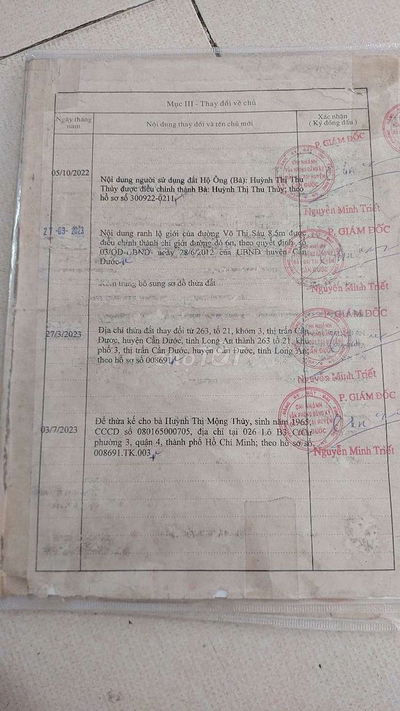 Mục III - Thay đổi về chủ
Ngày tháng năm
Nội dung thay đổi và tên chủ mới
Xác nhận
( Ký đóng dấu )
P. GIÁM ĐỐC
05/10/2022
Nội dung người sử dụng đất Hộ Ông (Bà): Huỳnh Thị Thu
Thủy được điều chỉnh thành Bà: Huỳnh Thị Thu Thủy; theo
hồ sơ số 300922-0211
Nguyễn Minh Triết
27-03-2023
Nội dung ranh lộ giới của đường Võ Thị Sáu 8,5m được
điều chỉnh thành chỉ giới đường đỏ 6m, theo quyết định số
03/QĐ-UBND ngày 28/6/2012 của UBND huyện Cần
Đước
P. GIÁM ĐỐC
Kèm trang bổ sung sơ đồ thửa đất
Nguyễn Minh Triết
P. GIÁM ĐỐC
27/3/2023
Địa chỉ thửa đất thay đổi từ 263, tổ 21, khóm 3, thị trấn Cần
Đước, huyện Cần Đước, tỉnh Long An thành 263 tổ 21, khu
phố 3, thị trấn Cần Đước, huyện Cần Đước, tỉnh Long An;
theo hồ sơ số 008691
Nguyễn Minh Triết
P. GIÁM ĐỐC
03/7/2023
Để thừa kế cho bà Huỳnh Thị Mộng Thúy, sinh năm 1965,
CCCD số 080165000705, địa chỉ tại 026 Lô B3
phường 3, quận 4, thành phố Hồ Chí Minh; theo hồ sơ số
008691.TK.003
Nguyễn Minh Triết